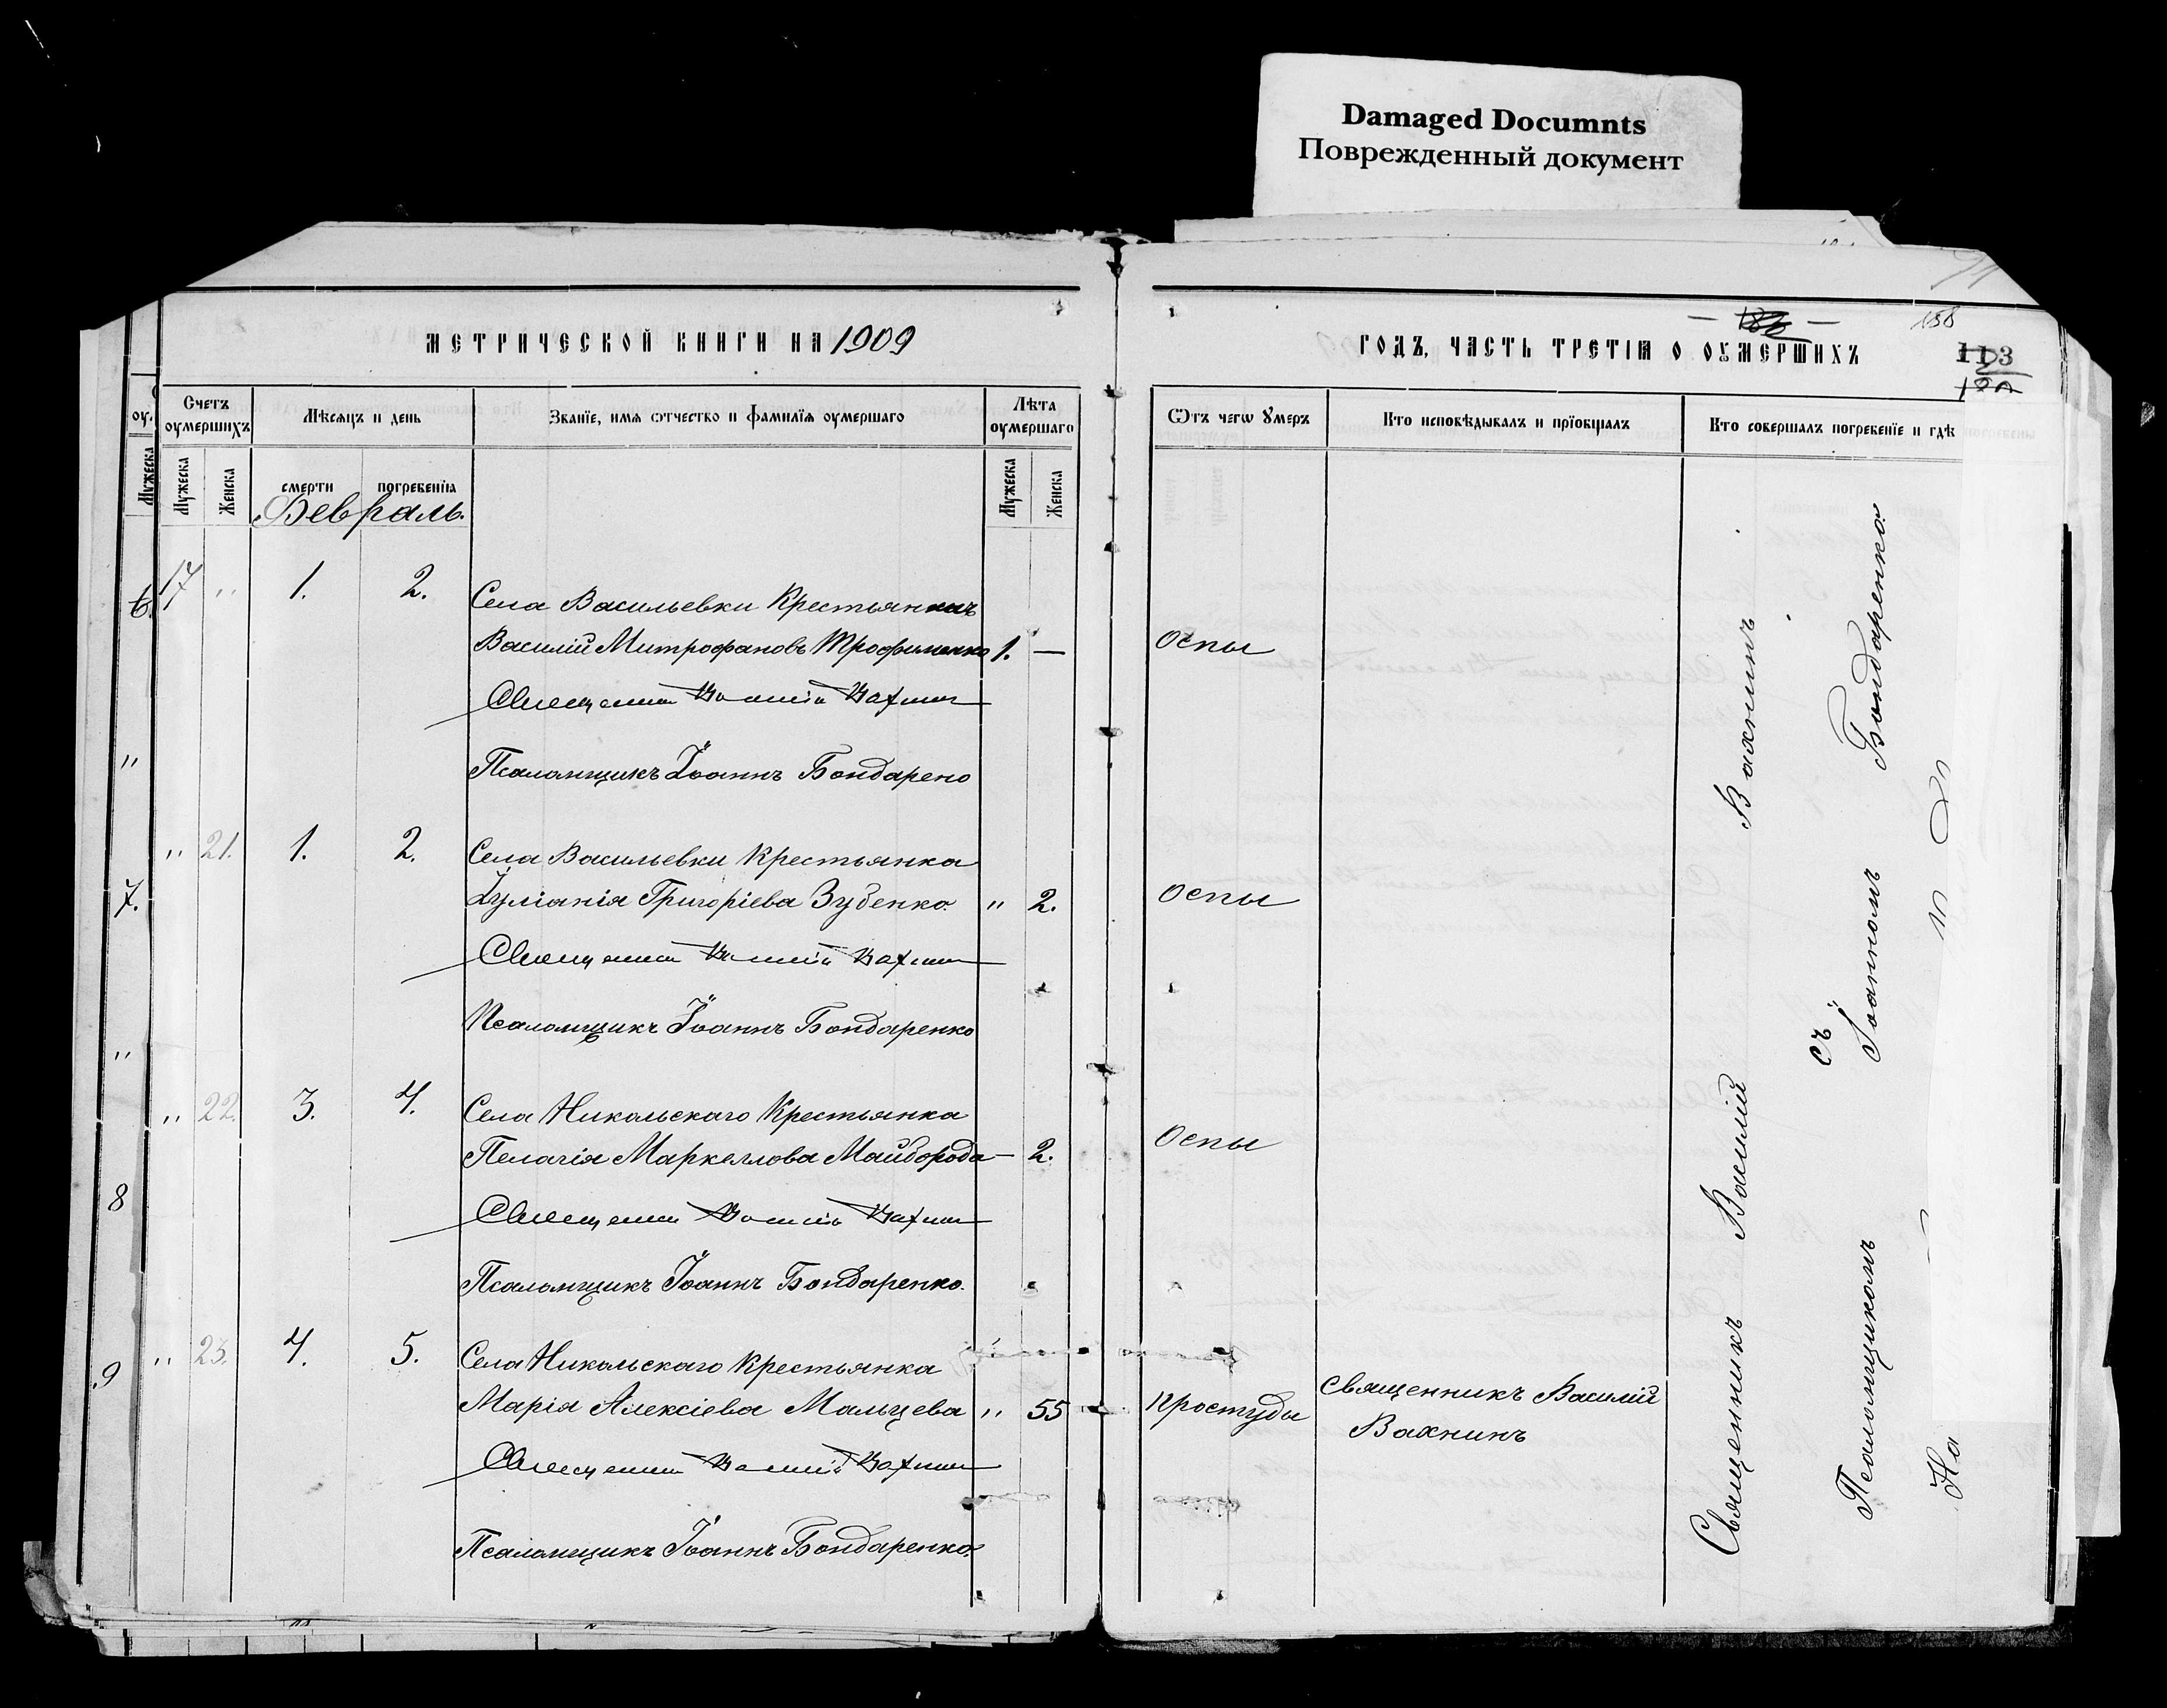 Damaged Documnts
Поврежденный документ
МЕТРИЧЕСКОЙ КНИГИ НА 1909
Счетъ оумершихъ
Мѣсяцъ и день
Званїе, имя ѡтчество и фамилїя оумершаго
Лѣта оумершаго
Мужеска
Мужеска
Женска
смерти
погребенїя
Мужеска
Женска
Февраль.
17 " 1. 2. Села Васильевки Крестьянинъ
Василій Митрофановъ Трофименко 1. —
Священникъ Василій Вахнинъ
Псаломщикъ Іоаннъ Бондарено
" 21. 1. 2. Села Васильевки Крестьянка
Іуліанія Григоріева Зубенко. " 2.
Священникъ Василій Вахнинъ
Псаломщикъ Іоаннъ Бондаренко
" 22. 3. 4. Села Никольскаго Крестьянка
Пелагія Маркеллова Майборода — 2.
Священникъ Василій Вахнинъ
Псаломщикъ Іоаннъ Бондаренко.
" 23. 4. 5. Села Никольскаго Крестьянка
Марія Алексіева Мальцева " 55
Священникъ Василій Вахнинъ
Псаломщикъ Іоаннъ Бондаренко.
6.
"
7.
"
8
9
158
ГОДЪ, ЧАСТЬ ТРЕТІѦ О ОУМЕРШИХЪ
113
Ѿтъ чегѡ ꙋмеръ
Кто исповѣдывалъ и прїобщалъ
Кто совершалъ погребенїе и гдѣ
Оспы
Оспы
Оспы
Простуды
Священникъ Василій
Вахнинъ
Священникъ Василій Вахнинъ
съ
Псаломщикомъ Іоанномъ Бондаренко.
На